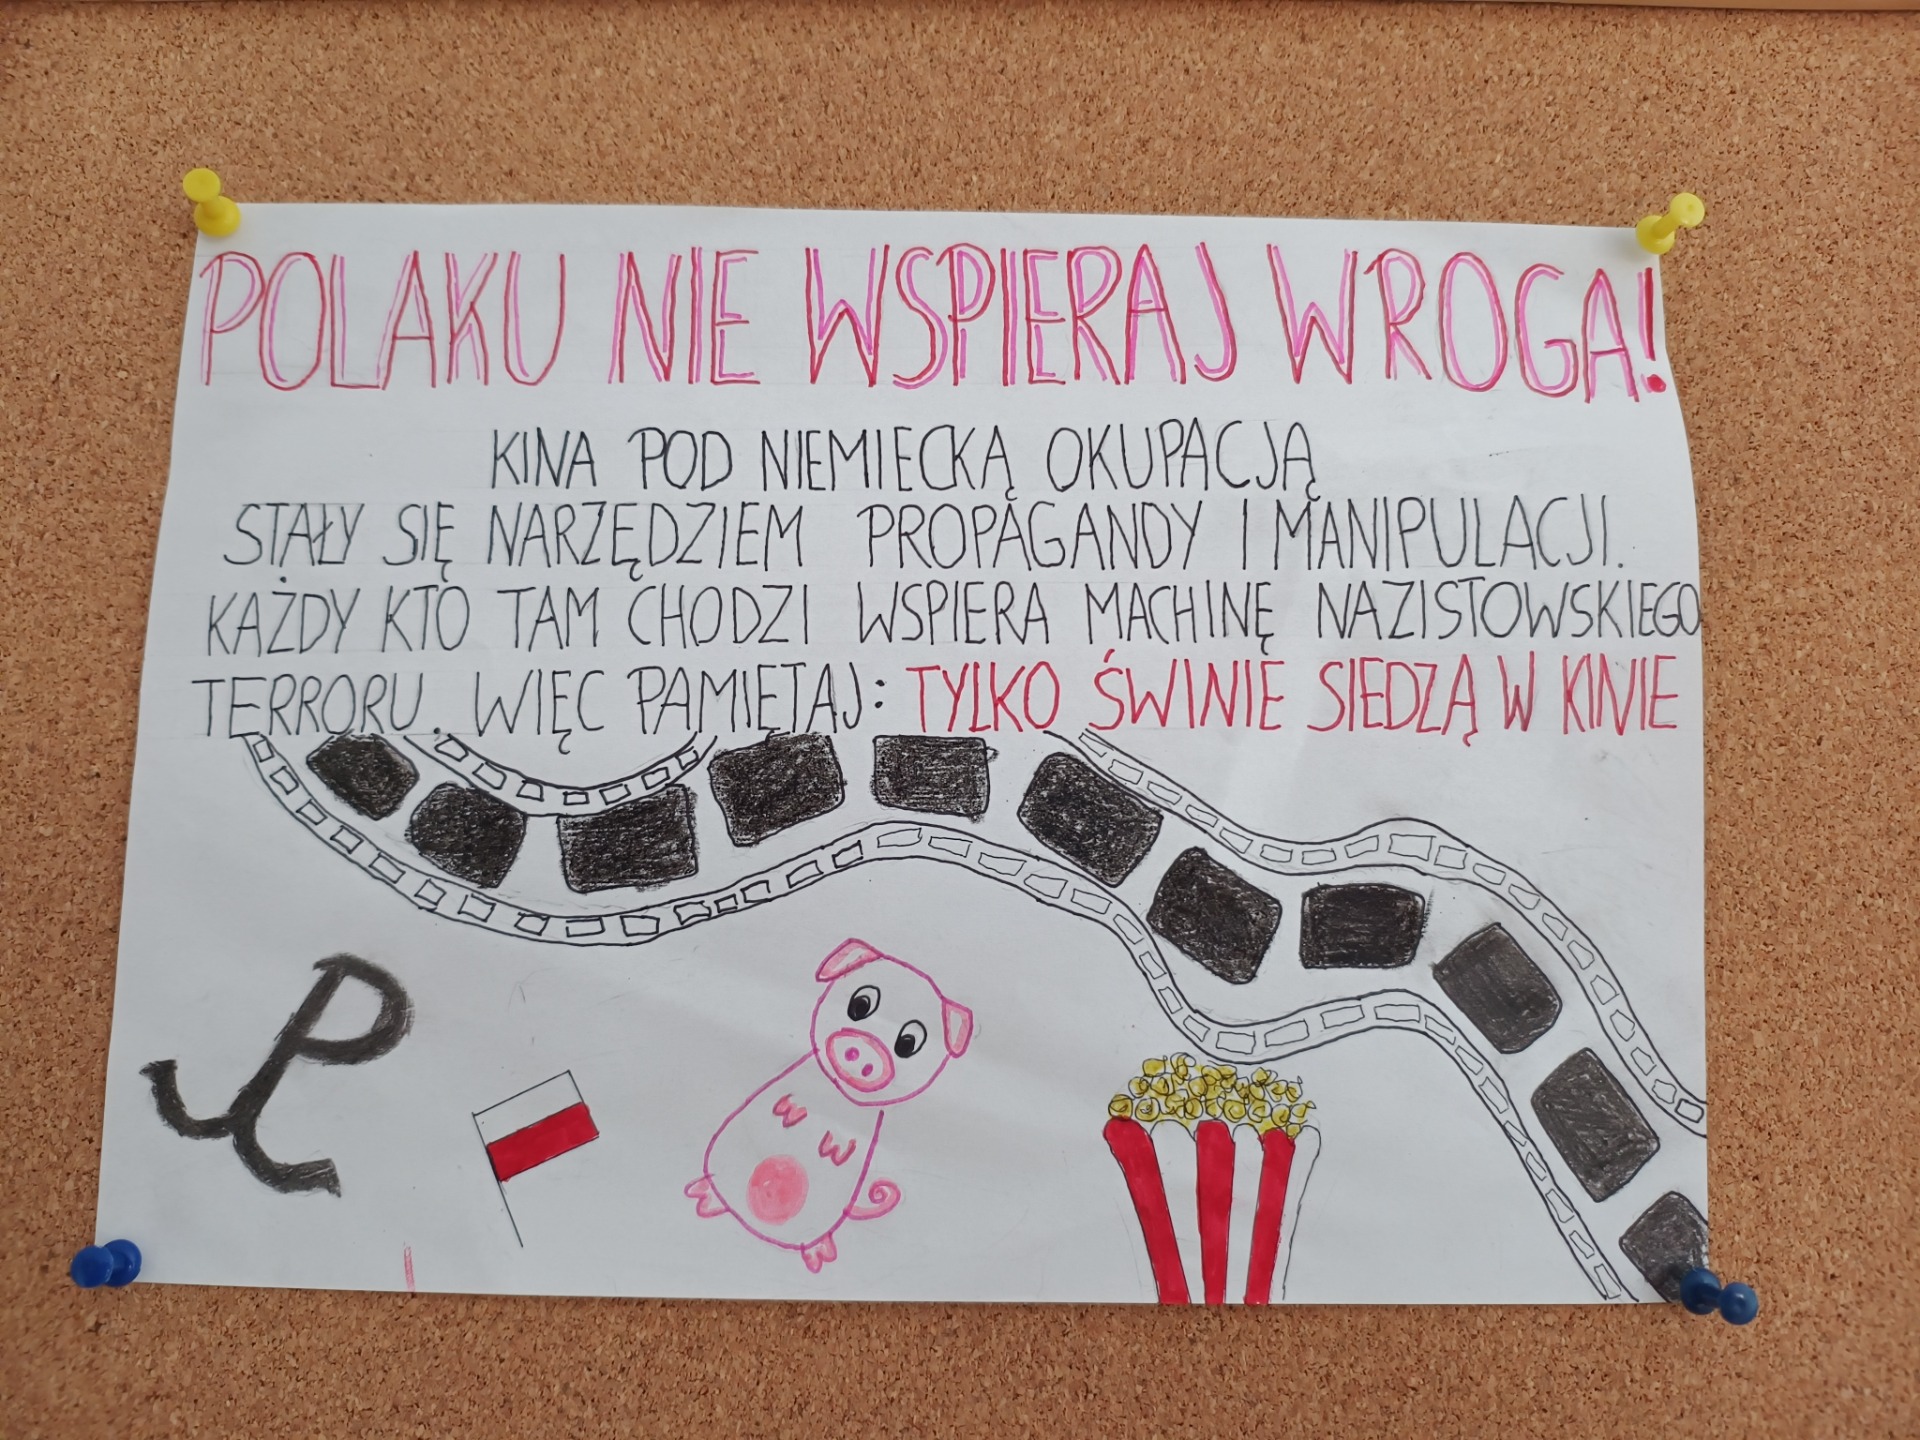 POLAKU NIE WSPIERAJ WROGA!
KINA POD NIEMIECKĄ OKUPACJĄ
STAŁY SIĘ NARZĘDZIEM PROPAGANDY I MANIPULACJI.
KAŻDY KTO TAM CHODZI WSPIERA MACHINĘ NAZISTOWSKIEGO
TERRORU. WIĘC PAMIĘTAJ: TYLKO ŚWINIE SIEDZĄ W KINIE